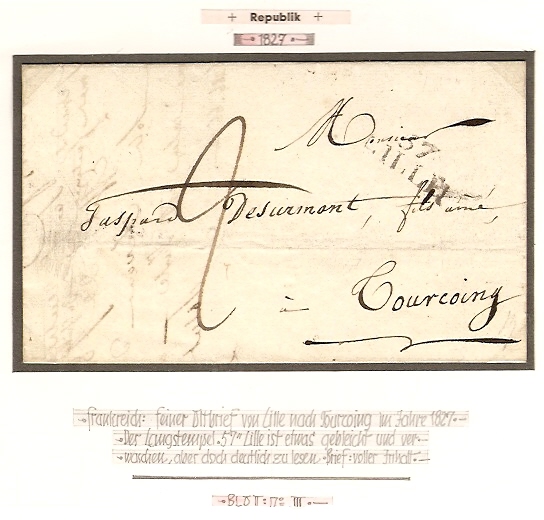 Republik
1827
Monsieur
57
LILLE
Gaspard Desurmont, fils ainé,
2
à Tourcoing
Frankreich: feiner Ortbrief von Lille nach Tourcoing im Jahre 1827
Der Langstempel "57" Lille ist etwas gebleicht und ver-
wachen, aber doch deutlich zu lesen. Brief: voller Inhalt
BLOTT: No III